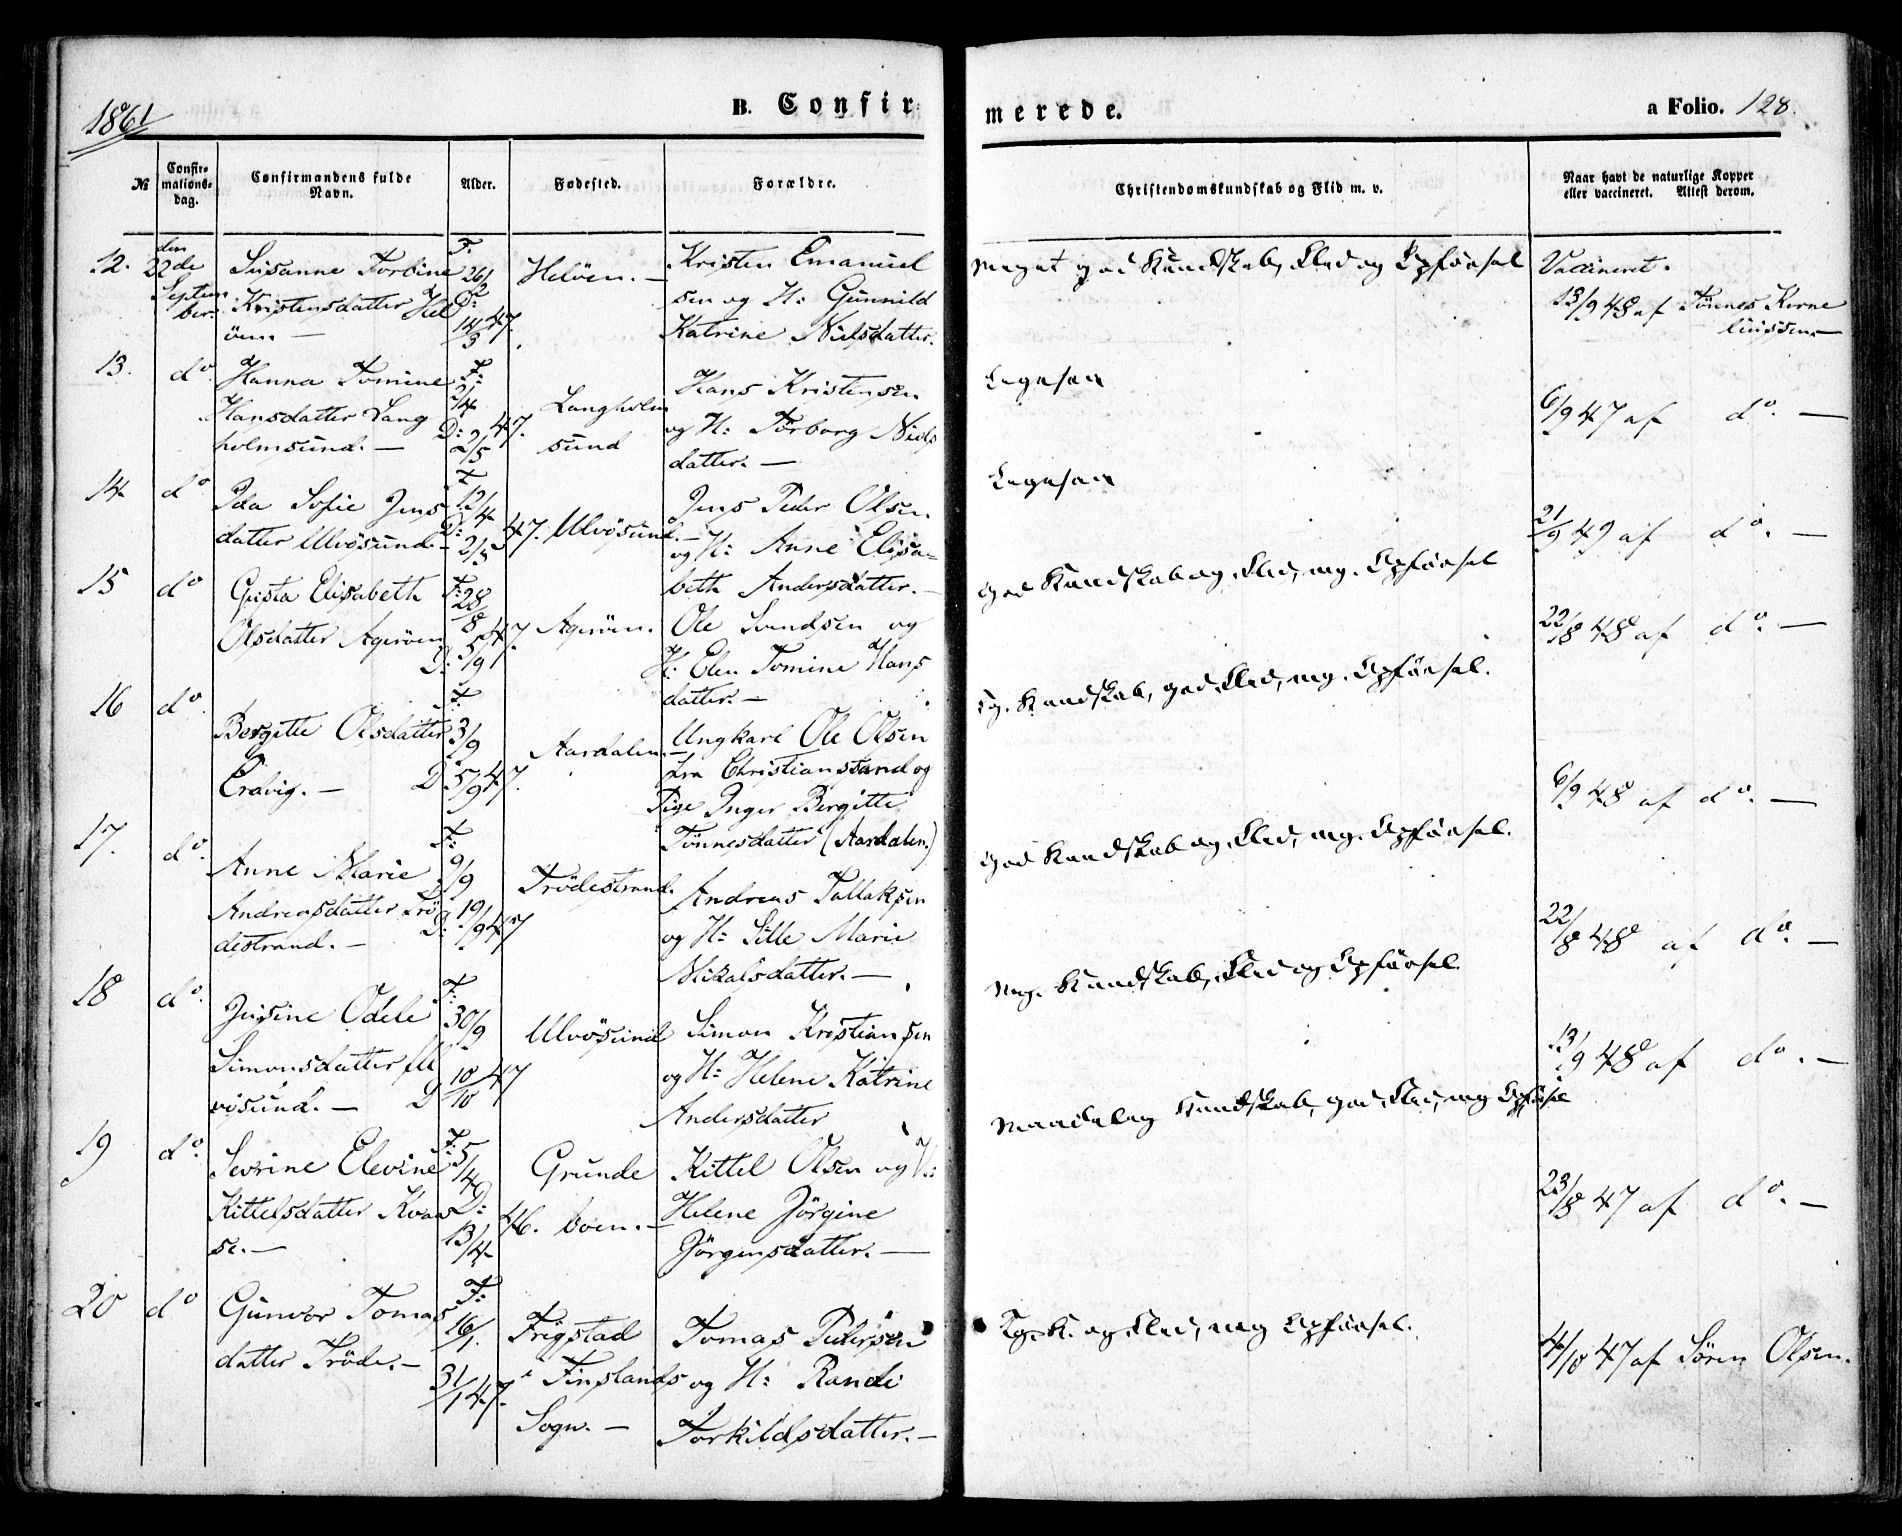 1861
B. Confirmerede.
a Folio. 128.
No
Confirmations-dag.
Confirmandens fulde Navn.
Alder.
Fødested.
Forældre.
Christendomskundskab og Flid m. v.
Naar havt de naturlige Kopper eller vaccineret. Attest derom.
12. den 22de September.
Susanne Torbine
Kristensdatter Hel
öen. —
F. 26/2
D: 14/3 47.
Helöen. —
Kristen Emanuel
sen og H: Gunnild
Katrine Nielsdatter.
meget god Kundskab, Flid og Opførsel
Vaccineret.
13/9 48 af Tönnes Korne
liussen. —
13. do.
Hanna Tomine
Hansdatter Lang
holmsund. —
F: 2/4
D: 2/5 47.
Langholm
sund
Hans Kristensen
og H: Torborg Niels
datter. —
Ligesaa
6/9 47 af do. —
14. do
Ida Sofie Jens
datter Ulvösund. —
F. 12/4
D: 2/5 47.
Ulvösund. —
Jens Peder Olsen
og H: Anne Elisa-
beth Andersdatter. —
Ligesaa
21/9 49 af do. —
15 do
Gusta Elisabeth
Olsdatter Ageröen
F: 28/8 47.
D: 5/9
Ageröen.
Ole Svendsen og
H: Elen Tomine Hans
datter. —
god Kundskab og Flid, mg. Opførsel
22/8 48 af do. —
16 do.
Bergitte Olsdatter
Eravig. —
F: 3/9
D: 5/9 47.
Aardalen. —
Ungkarl Ole Olsen
fra Christianssand og
Pige Inger Bergitte
Tönnesdatter (Aardalen.)
Tg. Kundskab, god Flid, mg. Opførsel.
6/9 48 af do. —
17. do.
Anne Marie
Andreasdatter Trö
destrand. —
F: 9/9
D: 19/9 47
Trödestrand.
Andreas Tallaksen
og H: Sille Marie
Mikalsdatter. —
god Kundskab og Flid, mg. Opførsel.
22/8 48 af do. —
18 do.
Jusine Odele
Simonsdatter Ul
vösund. —
F: 30/9
D 10/10 47
Ulvösund
Simon Kristiansen
og H: Helene Katrine
Andersdatter
mg. Kundskab, Flid og Opførsel.
13/9 48 af do. —
19 do.
Sevrine Elevine
Kittelsdatter Kvaa
se. —
F: 5/4
D: 13/4 46.
Grunde
boen. —
Kittel Olsen og H:
Helene Jörgine
Jörgensdatter. —
maadelig Kundskab, god Flid, mg Opførsel
23/8 47 af do. —
20 do
Gunvor Tomas
datter Tröde. —
F: 16/1.
31/1 47.
Frigstad
i Finslands
Sogn. —
Tomas Pedersen
og H: Randi
Torkildsdatter. —
Tg. K. og Flid, mg Opførsel.
4/10 47 af Sören Olsen.